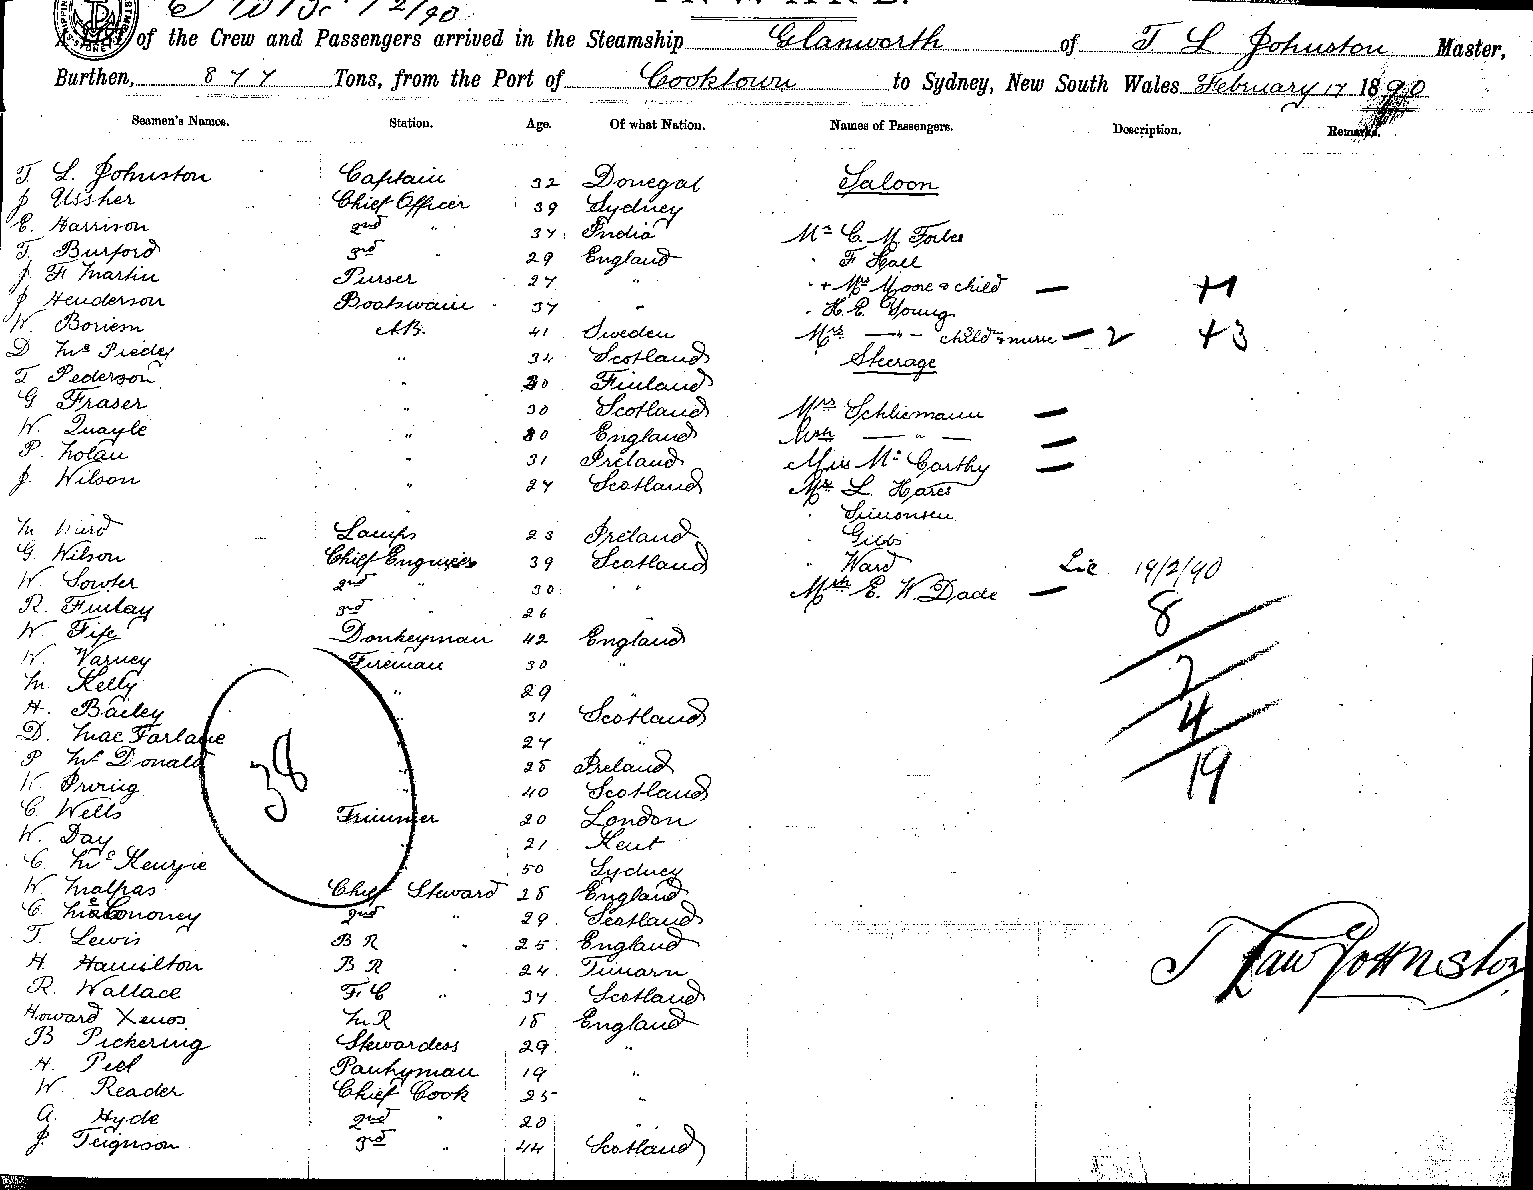 of the Crew and Passengers arrived in the Steamship Glanworth of T L Johnston Master,
Burthen, 877 Tons, from the Port of Cooktown to Sydney, New South Wales February 17 1890
Seamen's Names. Station. Age. Of what Nation. Names of Passengers. Description. Remarks.
T L. Johnston Captain 32 Donegal Saloon
J Ussher Chief Officer 39 Sydney
E. Harrison 2nd " 37 India Mr C. M Forbes
T. Burford 3rd 29 England F Hall
J F Martin Purser 27 " + Mrs Moore & child — +1
J Henderson Boatswain 37 " H. E. Young
W. Boriem A.B. 41 Sweden Mrs — " — child & nurse — 2 +3
D McPiedy " 34 Scotland Steerage
T Pederson " 30 Finland
G Fraser " 30 Scotland Mrs Schliemann —
W. Quayle " 30 England — " — —
P. Nolan " 31 Ireland Miss McCarthy —
J. Wilson " 27 Scotland Mr L. Hares
Simonsen
M Ward Lamps 23 Ireland Gibbs
G. Wilson Chief Engineer 39 Scotland Ward 19/2/90
W. Sowter 2nd " 30 " Mrs E. W. Dade —
R. Finlay 3rd " 26 8
W. Fife Donkeyman 42 England
W. Varney Fireman 30 " 2
M. Kelly " 29 "
H. Bailey 31 Scotland 4
D. MacFarlane 27 "
P McDonald 28 Ireland 19
W Irving 40 Scotland
38
C. Wells Trimmer 20 London
W. Day 21 Kent
C. McKenzie 50 Sydney
W. Malpas Chief Steward 28 England
C. 2nd " 29 Scotland
T. Lewis B R " 25 England
H. Hamilton B R 24 Timaru
R. Wallace F. C " 37 Scotland
Howard Xenos M R 18 England
B Pickering Stewardess 29 "
H. Peel Pantryman 19 "
W. Reader Chief Cook 25 "
A. Hyde 2nd " 20 "
J. Ferguson 3rd " 44 Scotland
T Law Johnston